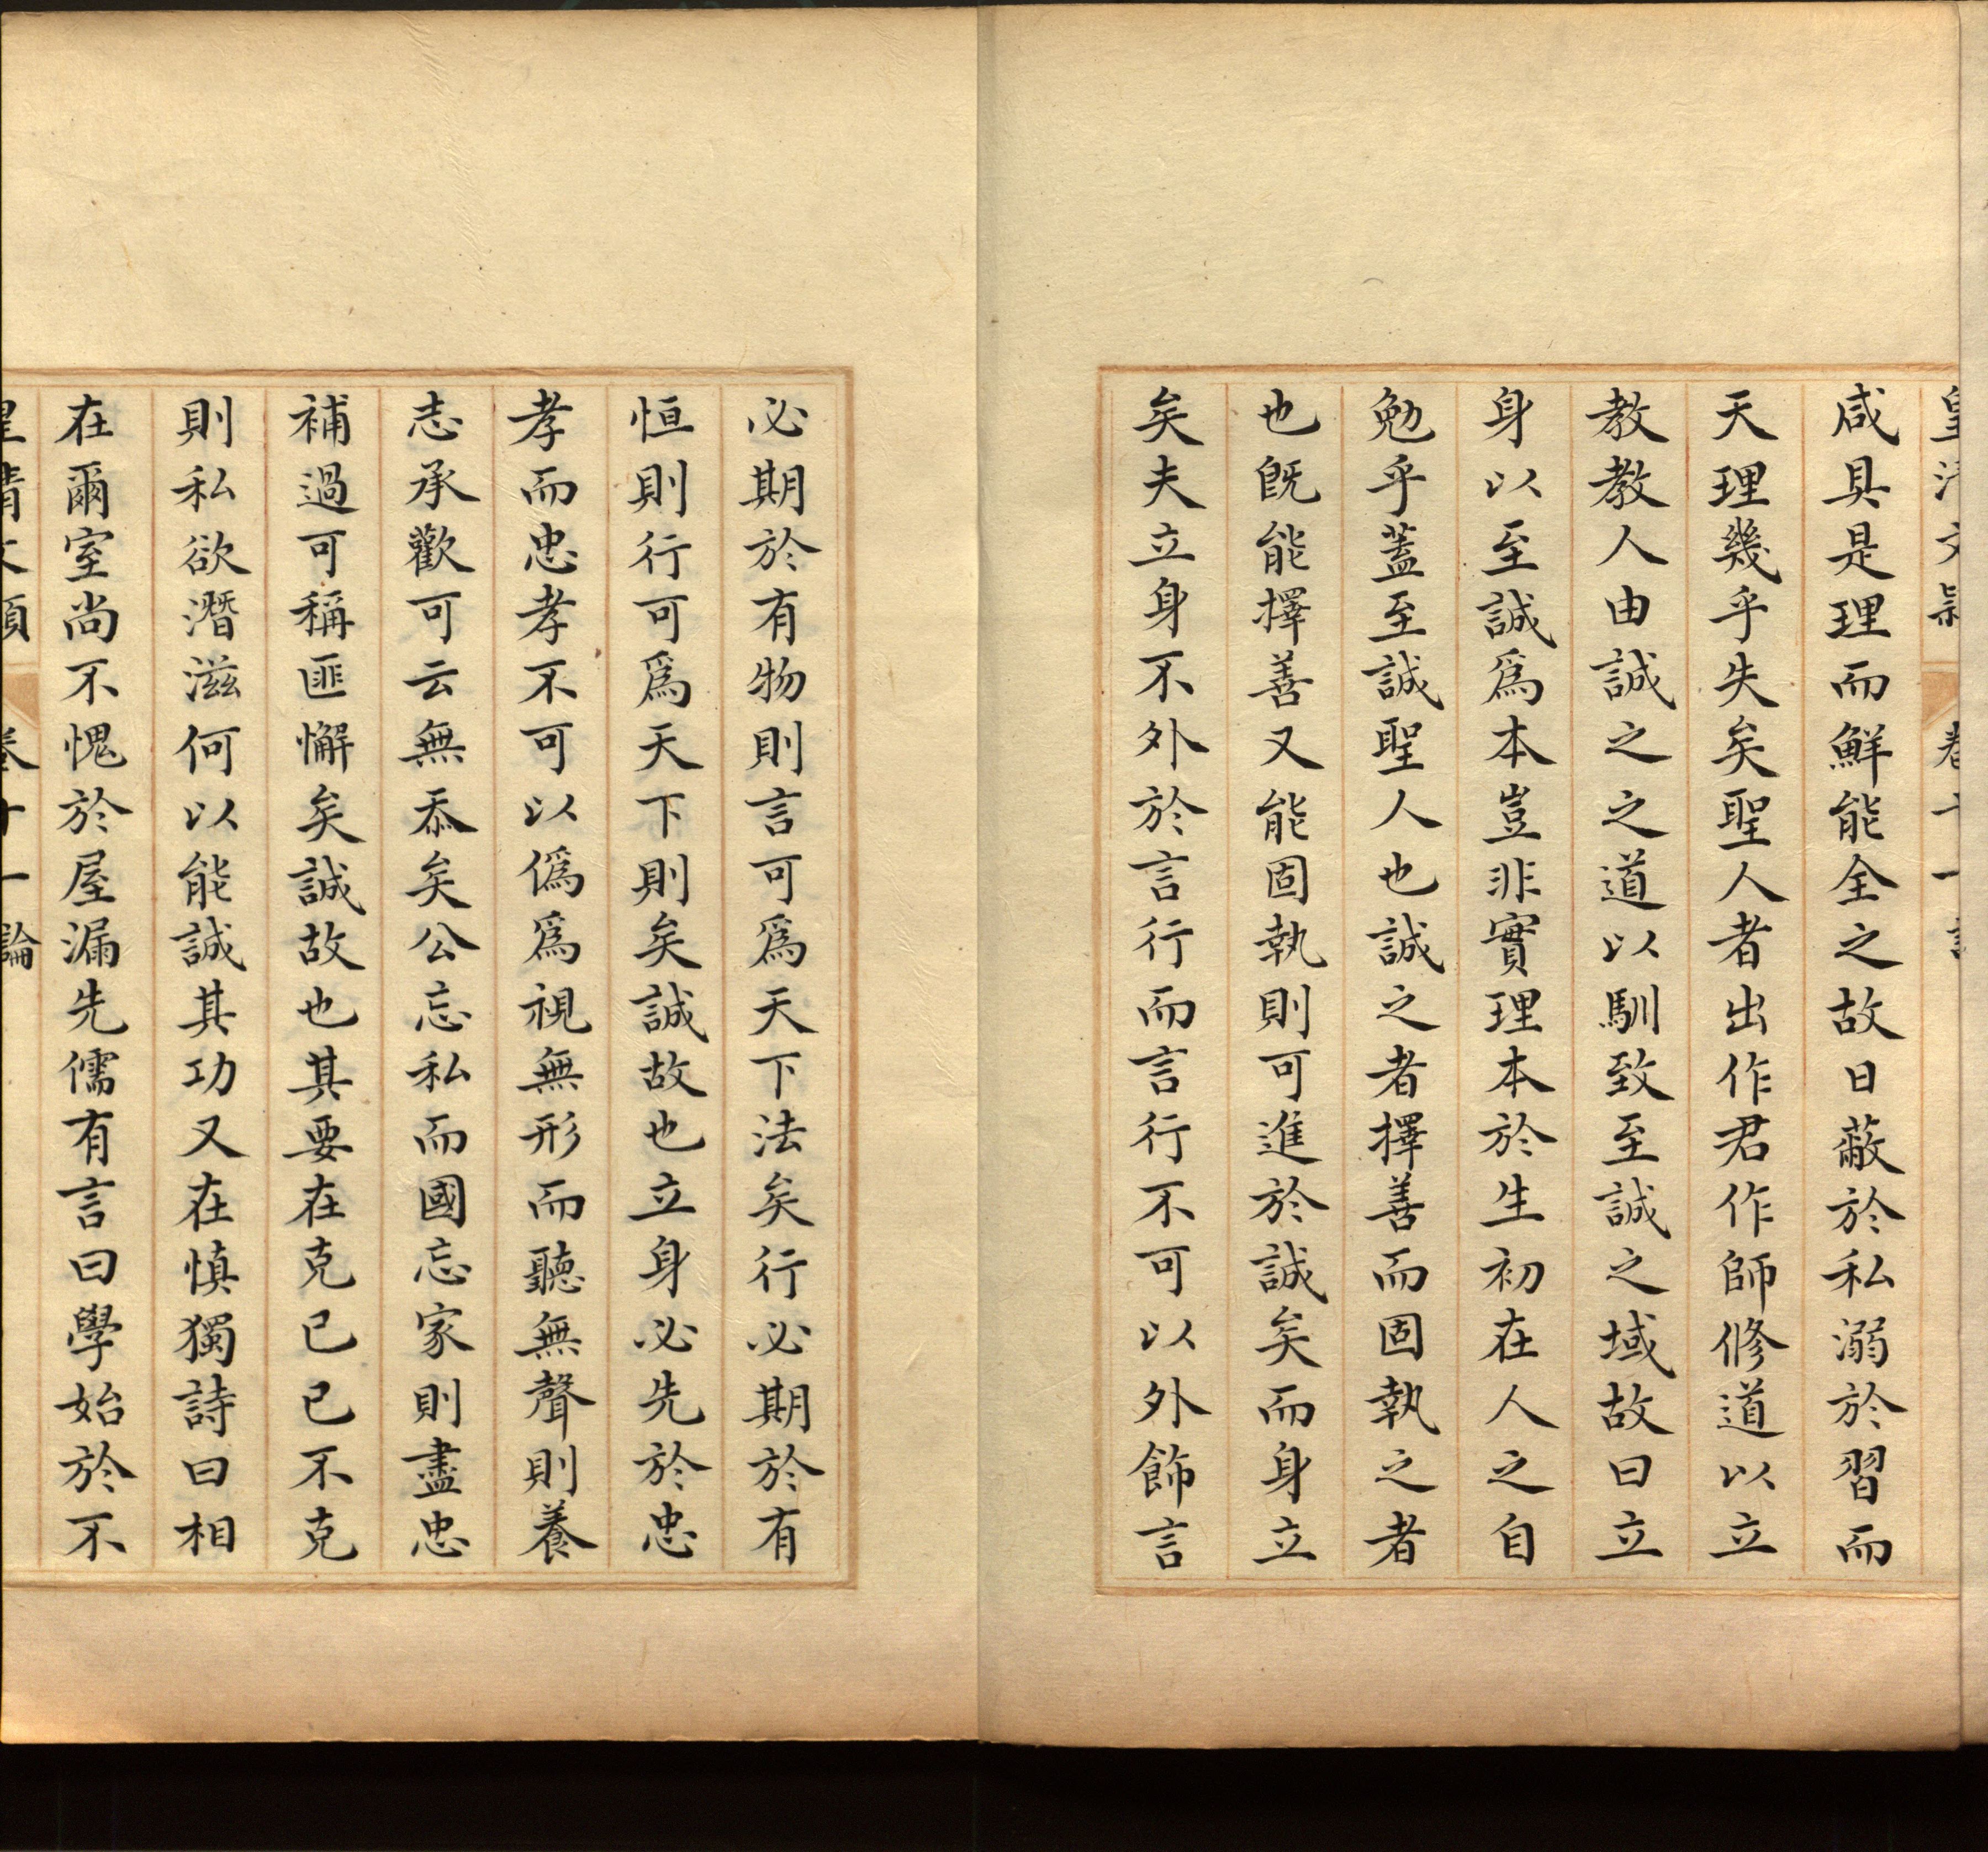 皇清文穎 卷十一 論
咸具是理而鮮能全之故日蔽於私溺於習而
天理幾乎失矣聖人者出作君作師修道以立
教教人由誠之之道以馴致至誠之域故曰立
身以至誠為本豈非實理本於生初在人之自
勉乎蓋至誠聖人也誠之者擇善而固執之者
也既能擇善又能固執則可進於誠矣而身立
矣夫立身不外於言行而言行不可以外飾言
必期於有物則言可為天下法矣行必期於有
恒則行可為天下則矣誠故也立身必先於忠
孝而忠孝不可以偽為視無形而聽無聲則養
志承歡可云無忝矣公忘私而國忘家則盡忠
補過可稱匪懈矣誠故也其要在克己己不克
則私欲潛滋何以能誠其功又在慎獨詩曰相
在爾室尚不愧於屋漏先儒有言曰學始於不
皇清文穎 卷十一 論